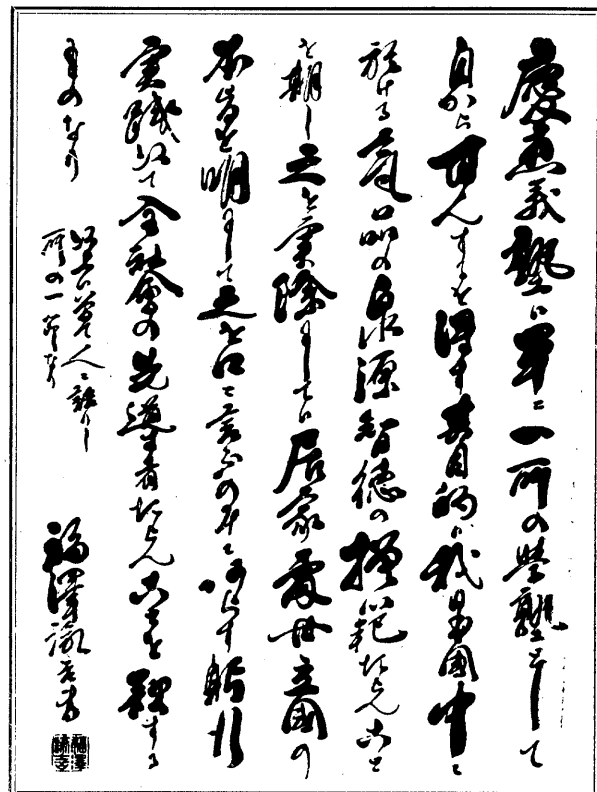 慶應義塾ハ單ニ一所の學塾として
自から甘んするを得す其目的ハ我日本國中ニ
於ける氣品の泉源智徳の模範たらんこと
を期し之を實際にしてハ居家處世立國の
本旨を明にして之を口ニ言ふのみニあらす躬行
実踐以て全社會の先導者たらんことを欲する
ものなり
以上ハ曾て人ニ語りし
所の一節なり
福澤諭吉書